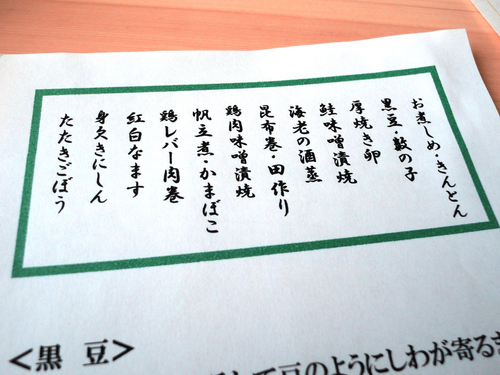 お煮しめ・きんとん
黒豆・数の子
厚焼き卵
鮭味噌漬焼
海老の酒蒸
昆布巻・田作り
鶏肉味噌漬焼
帆立煮・かまぼこ
鶏レバー肉巻
紅白なます
身欠きにしん
たたきごぼう
<黒 豆>
て豆のようにしわが寄るま